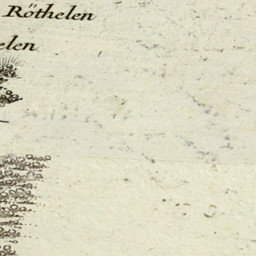 Röthelen
elen